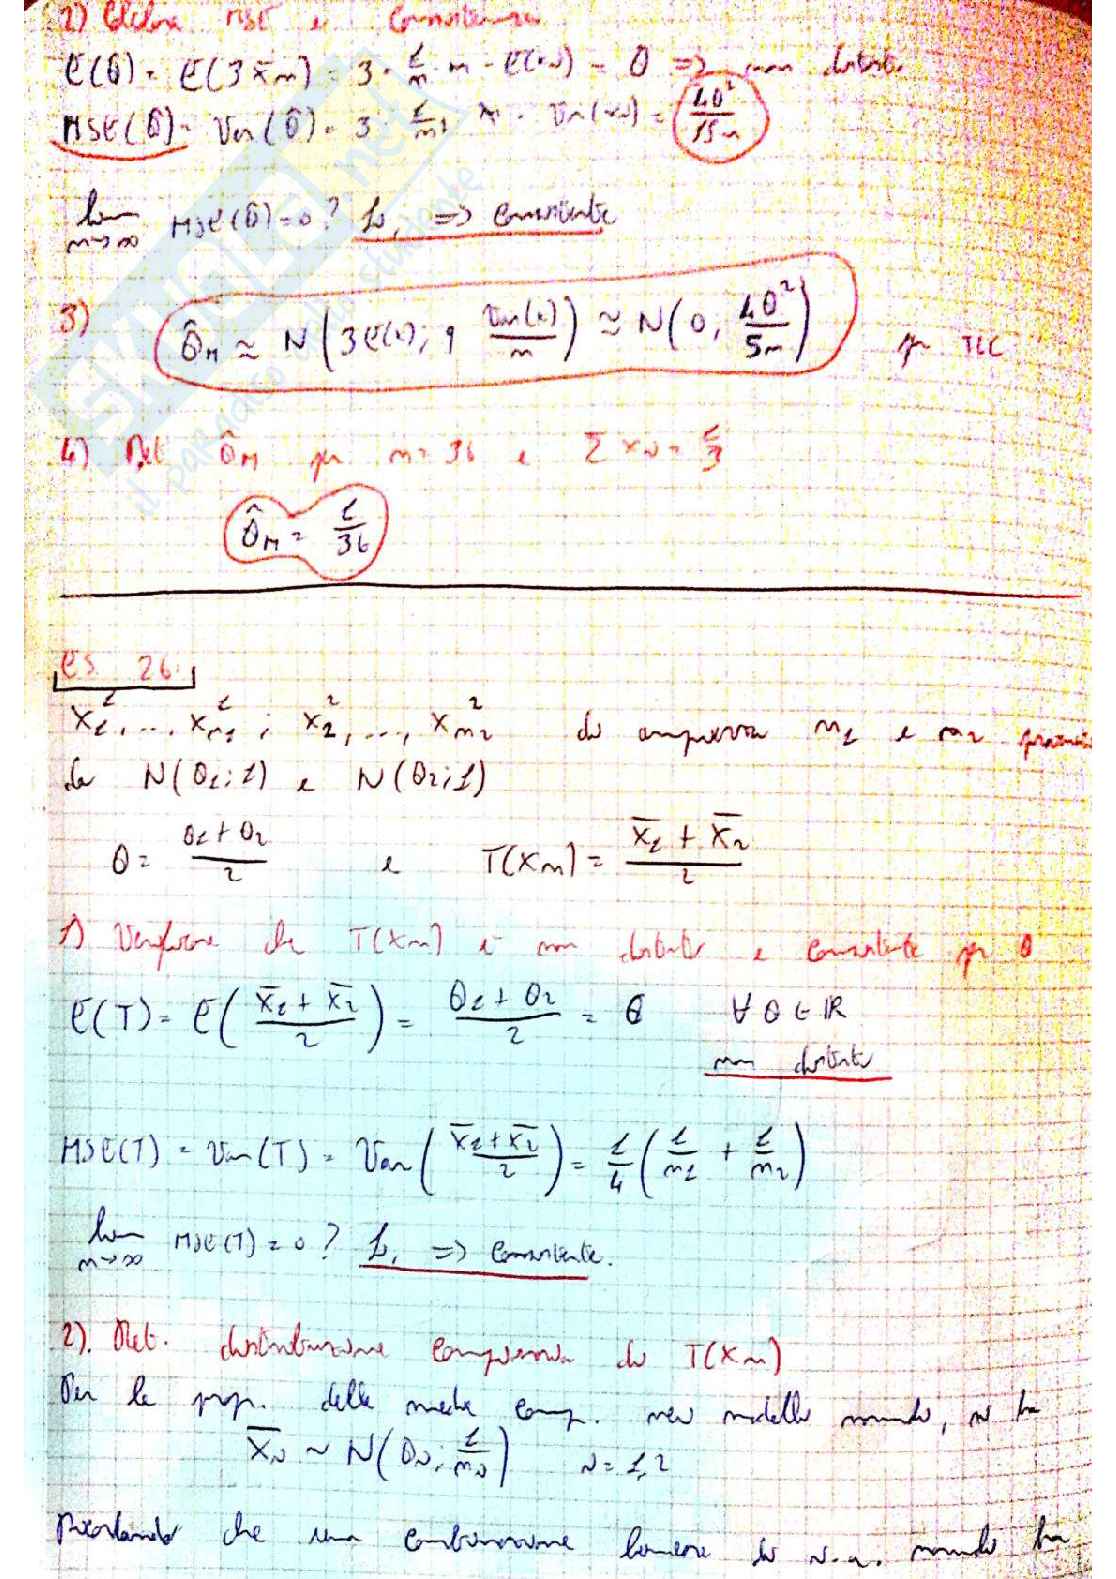 2) Calcolare MSE e Consistenza
E(θ̂) = E(3 x̄n) = 3 · 1/n · n · E(xi) = θ => non distorto
MSE(θ̂) = Var(θ̂) = 3 · 1/n² · n · Var(xi) = 4θ²/15n
lim n→∞ MSE(θ̂) = 0 ? Sì, => Consistente
3) θ̂M ≃ N(3E(x); 9 Var(x)/n) ≃ N(θ; 4θ²/5n) per TLC
4) Det. θ̂M per n = 36 e Σ xi = 1/3
θ̂M = 1/36
es. 26.
x₁¹, ..., xn₁¹ ; x₂², ..., xn₂² di ampiezza n₁ e n₂ provenienti
da N(θ₁; 1) e N(θ₂; 1)
θ = (θ₁ + θ₂)/2 e T(Xn) = (x̄₁ + x̄₂)/2
1) Verificare che T(Xn) è non distorto e consistente per θ
E(T) = E((x̄₁ + x̄₂)/2) = (θ₁ + θ₂)/2 = θ ∀ θ ∈ ℝ
non distorto
MSE(T) = Var(T) = Var((x̄₁ + x̄₂)/2) = 1/4 (1/n₁ + 1/n₂)
lim n→∞ MSE(T) = 0 ? Sì, => Consistente.
2). Det. distribuzione campionaria di T(Xn)
Per le prop. della media camp. nel modello normale, si ha
x̄i ~ N(θi; 1/ni) i = 1, 2
Ricordando che una combinazione lineare di v.a. normali ha
SKUOLA.net
il paradiso dello studente